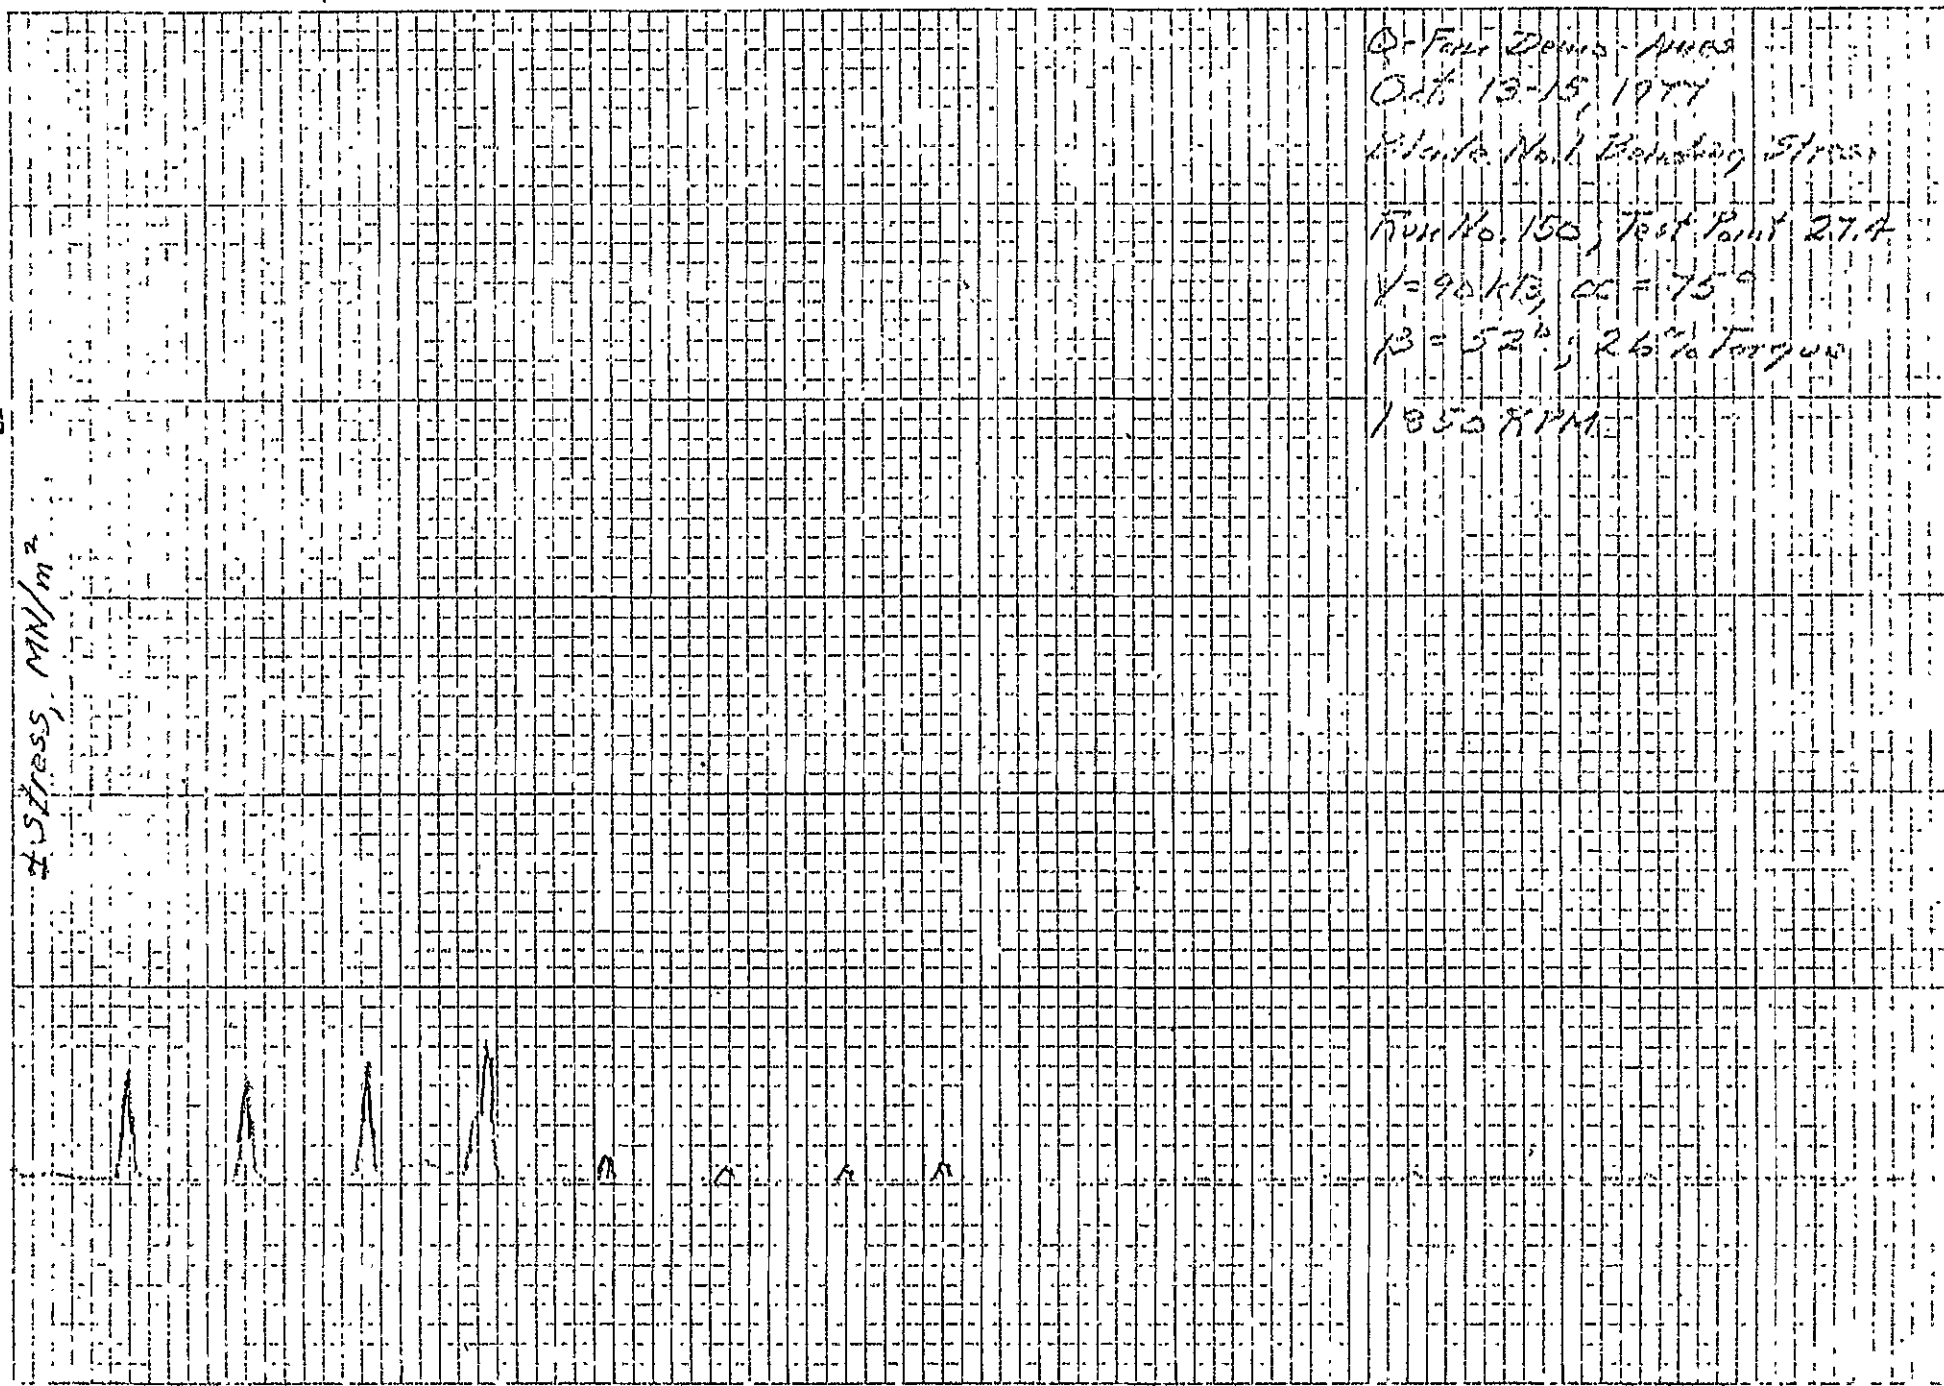 Q-Fan Demo - Ames
Oct. 13-15, 1977
Blade No. 1 Bending Stress
Run No. 150, Test Point 27.4
V = 90 kts, α = 75°
β = 52°; 26% Torque
1850 RPM
± Stress, MN/m²